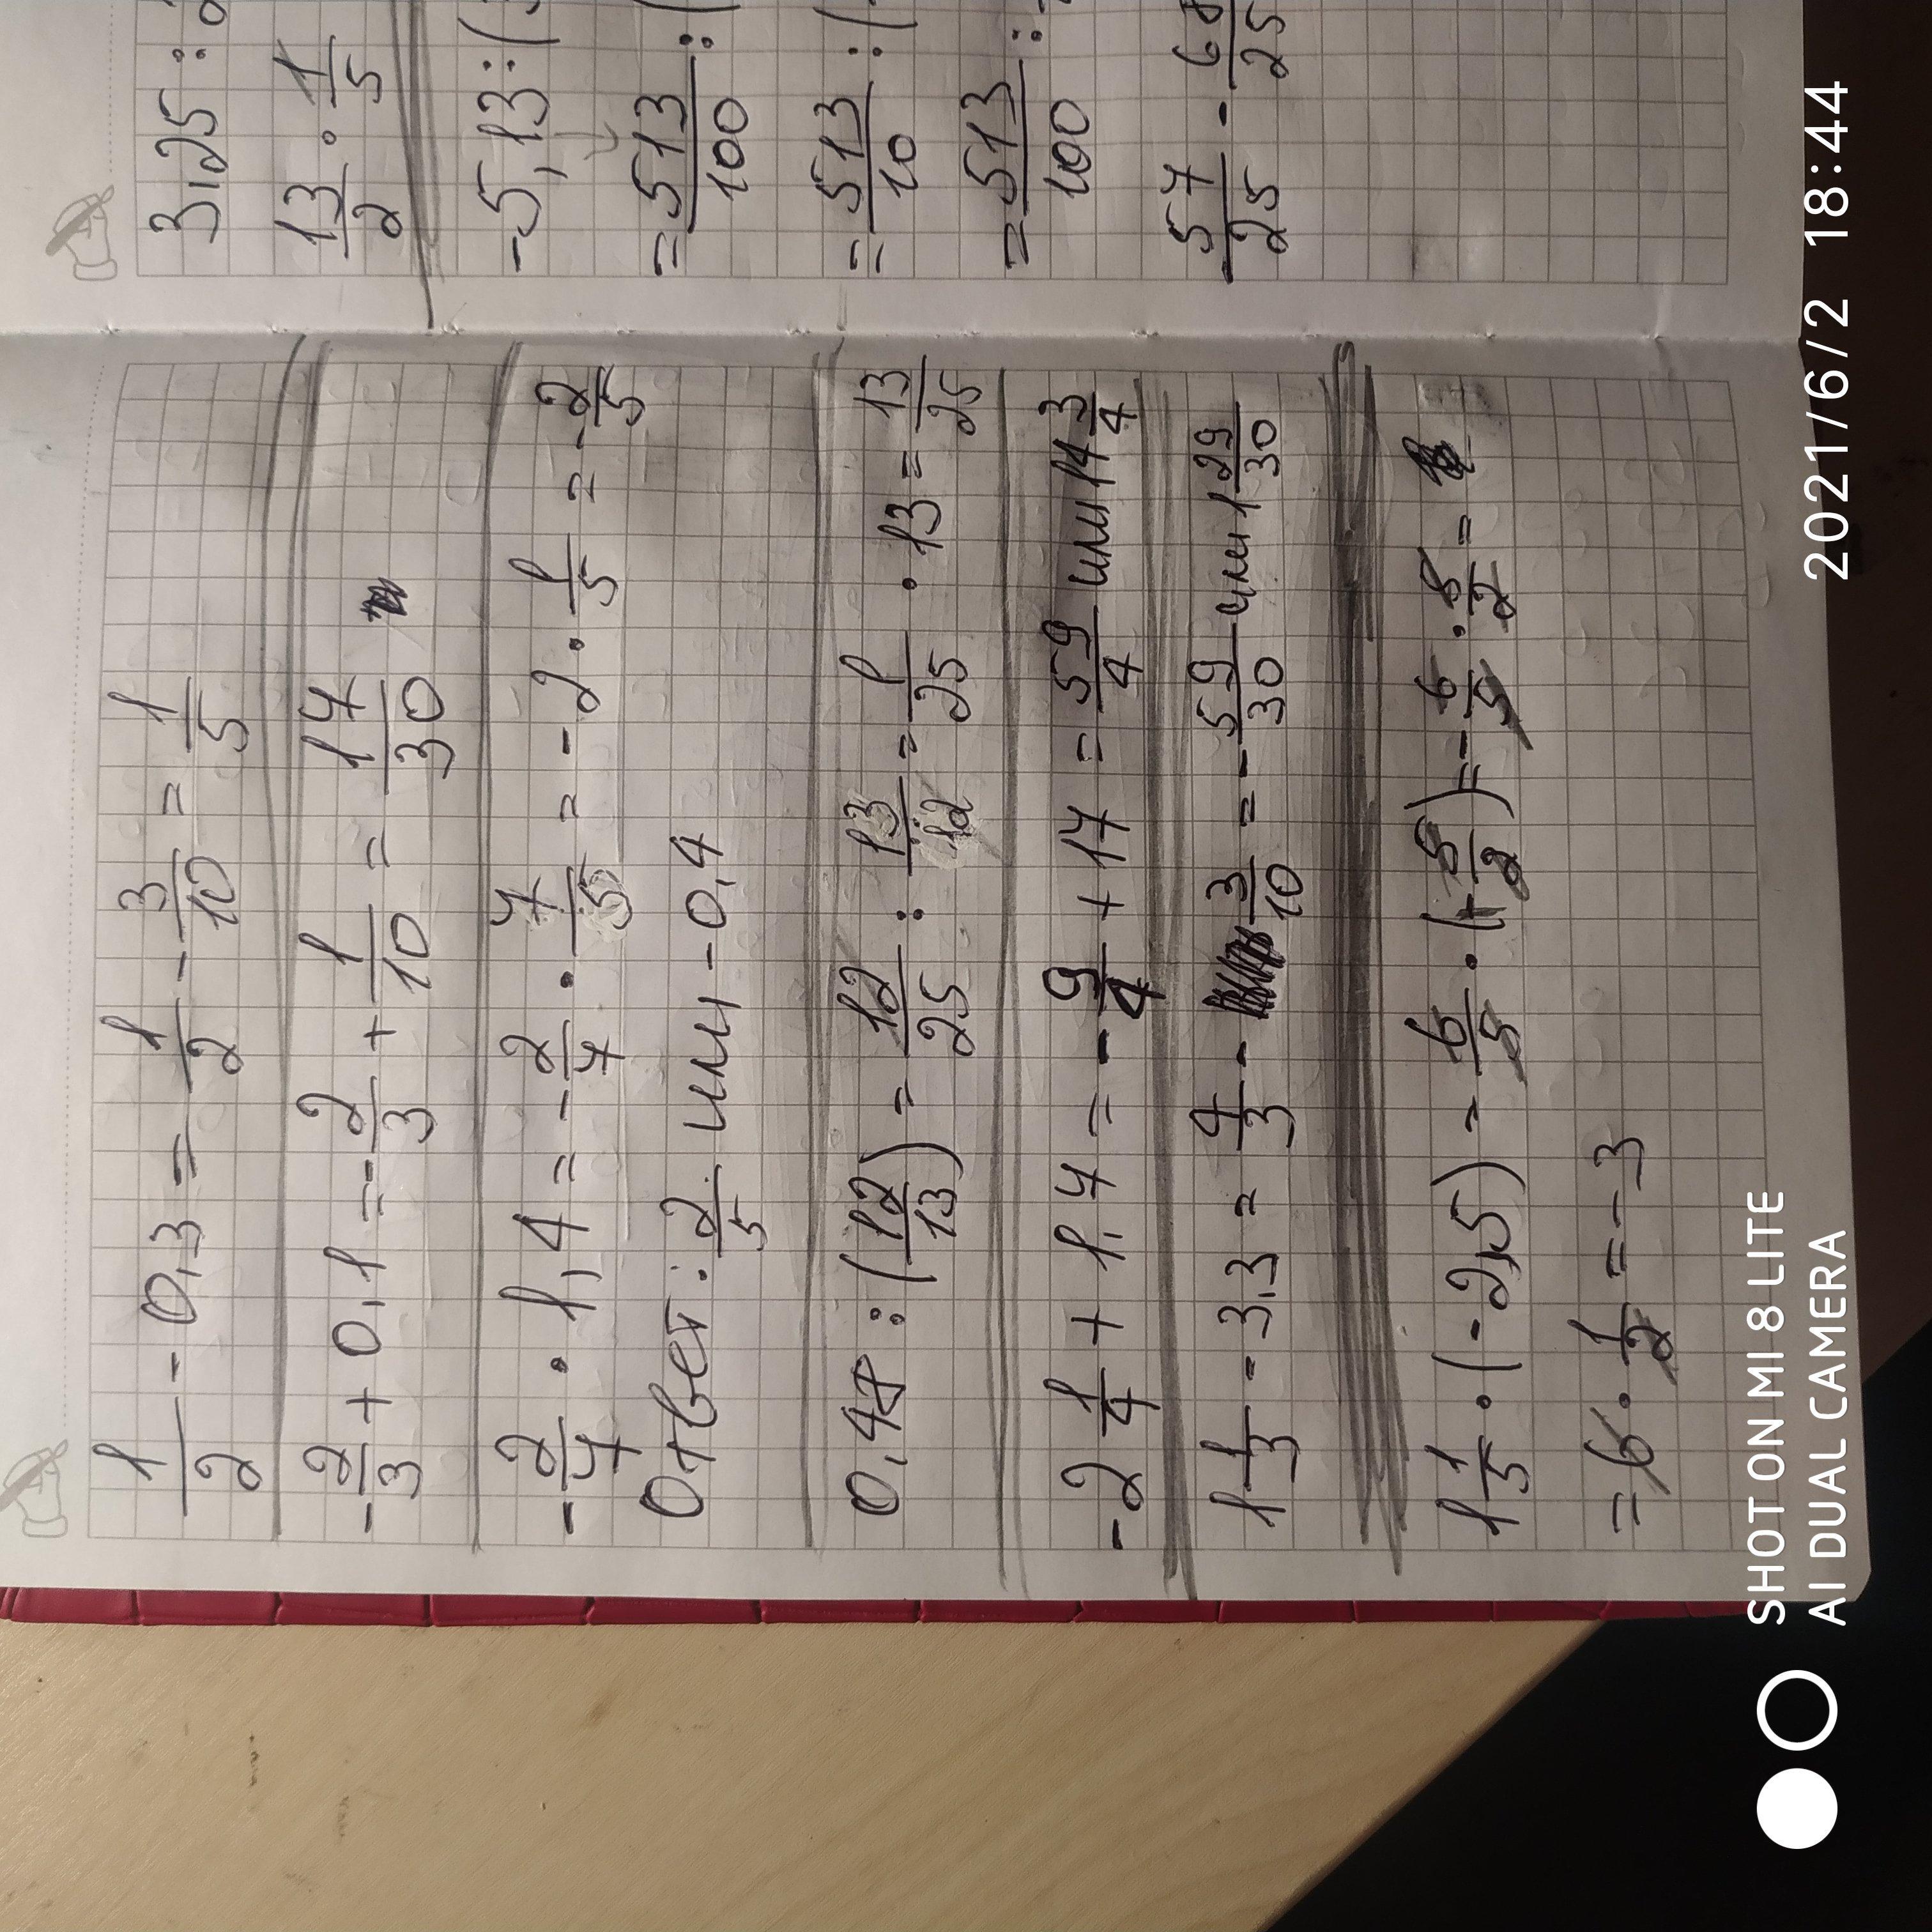 1/2 - 0,3 = 1/2 - 3/10 = 1/5
-2/3 + 0,1 = -2/3 + 1/10 = 17/30
-2/7 · 1,4 = -2/7 · 7/5 = -2 · 1/5 = -2/5
Ответ: 2/5 или -0,4
0,48 : (12/13) = 12/25 : 13/12 = 1/25 · 13 = 13/25
-2 1/4 + 1,7 = -9/4 + 17 = 59/4 или 14 3/4
1 1/3 - 3,3 = 4/3 - 3/10 = -59/30 или 1 29/30
1 1/5 · (-2,5) = 6/5 · (+5/2) = -6/5 · 5/2 =
= 6 · 1/2 = -3
3,25 :
13/2 · 1/5
-5,13 : (
= 513/100 : (
= 513/10 : (
= 513/100 :
57/25 - 68/25
SHOT ON MI 8 LITE
AI DUAL CAMERA
2021/6/2 18:44